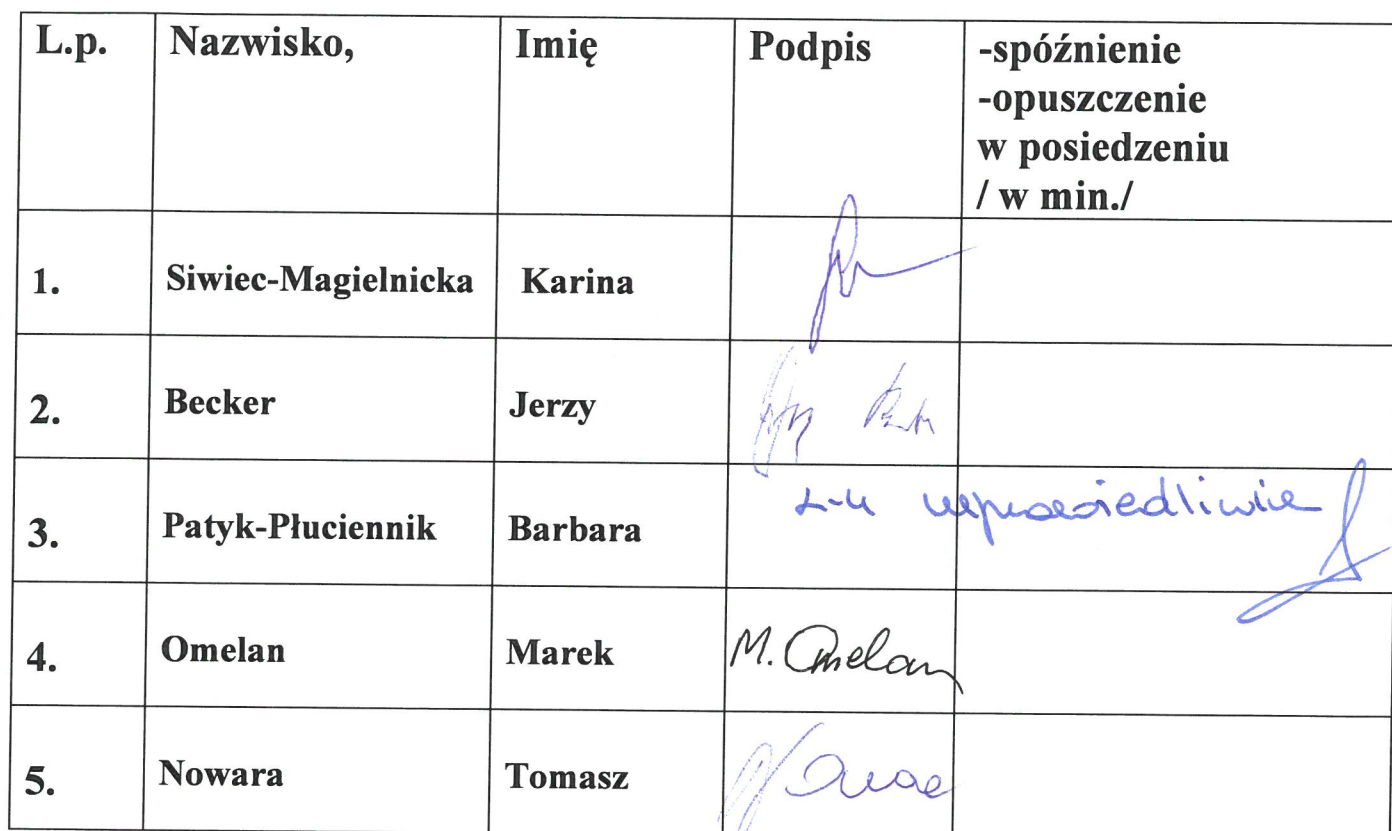 L.p. Nazwisko, Imię Podpis -spóźnienie
-opuszczenie
w posiedzeniu
/ w min./
1. Siwiec-Magielnicka Karina
2. Becker Jerzy
3. Patyk-Płuciennik Barbara
4. Omelan Marek M. Omelan
5. Nowara Tomasz